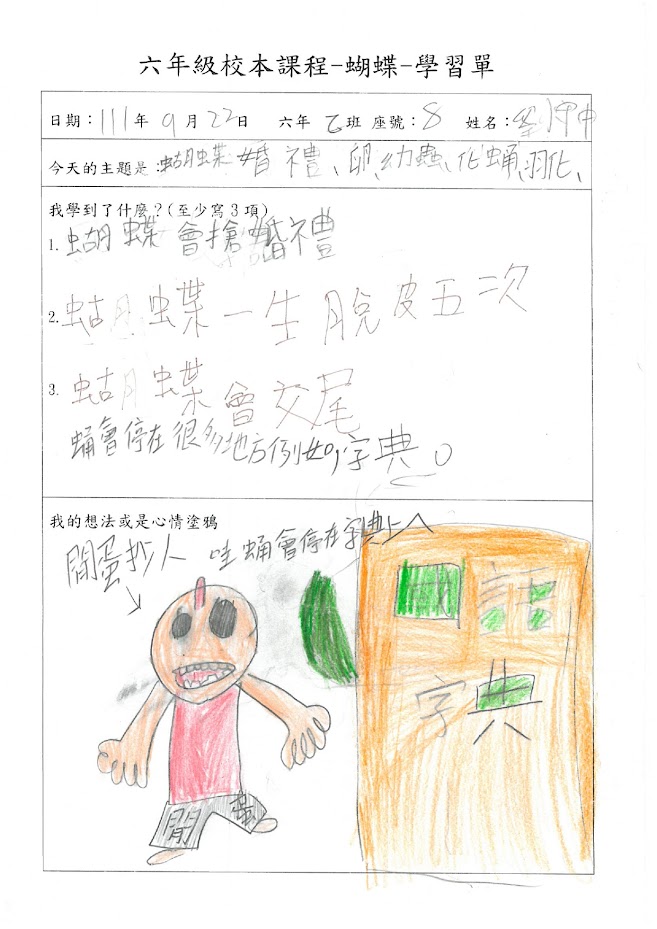 六年級校本課程-蝴蝶-學習單
日期：111年 9月 22日 六年 乙班 座號：8 姓名：
今天的主題是：蝴蝶婚禮、卵、幼蟲、化蛹、羽化、
我學到了什麼？(至少寫3項)
1. 蝴蝶會搶婚禮
2. 蝴蝶一生脫皮五次
3. 蝴蝶會交尾
蛹會停在很多地方例如字典。
我的想法或是心情塗鴉
鬧蛋抄人 哇蛹會停在字典上
國語
字典
鬧